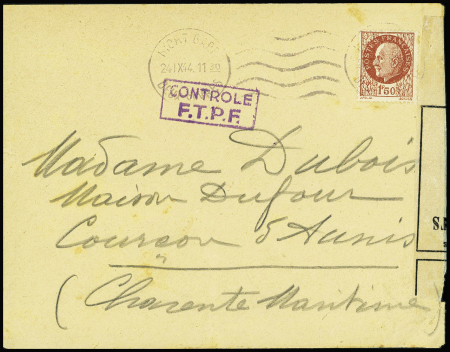 POSTES FRANÇAISES
1F50
CONTROLE
F.T.P.F.
Madame Dubois
Maison Dufour
Courçon d'Aunis
(Charente Maritime)